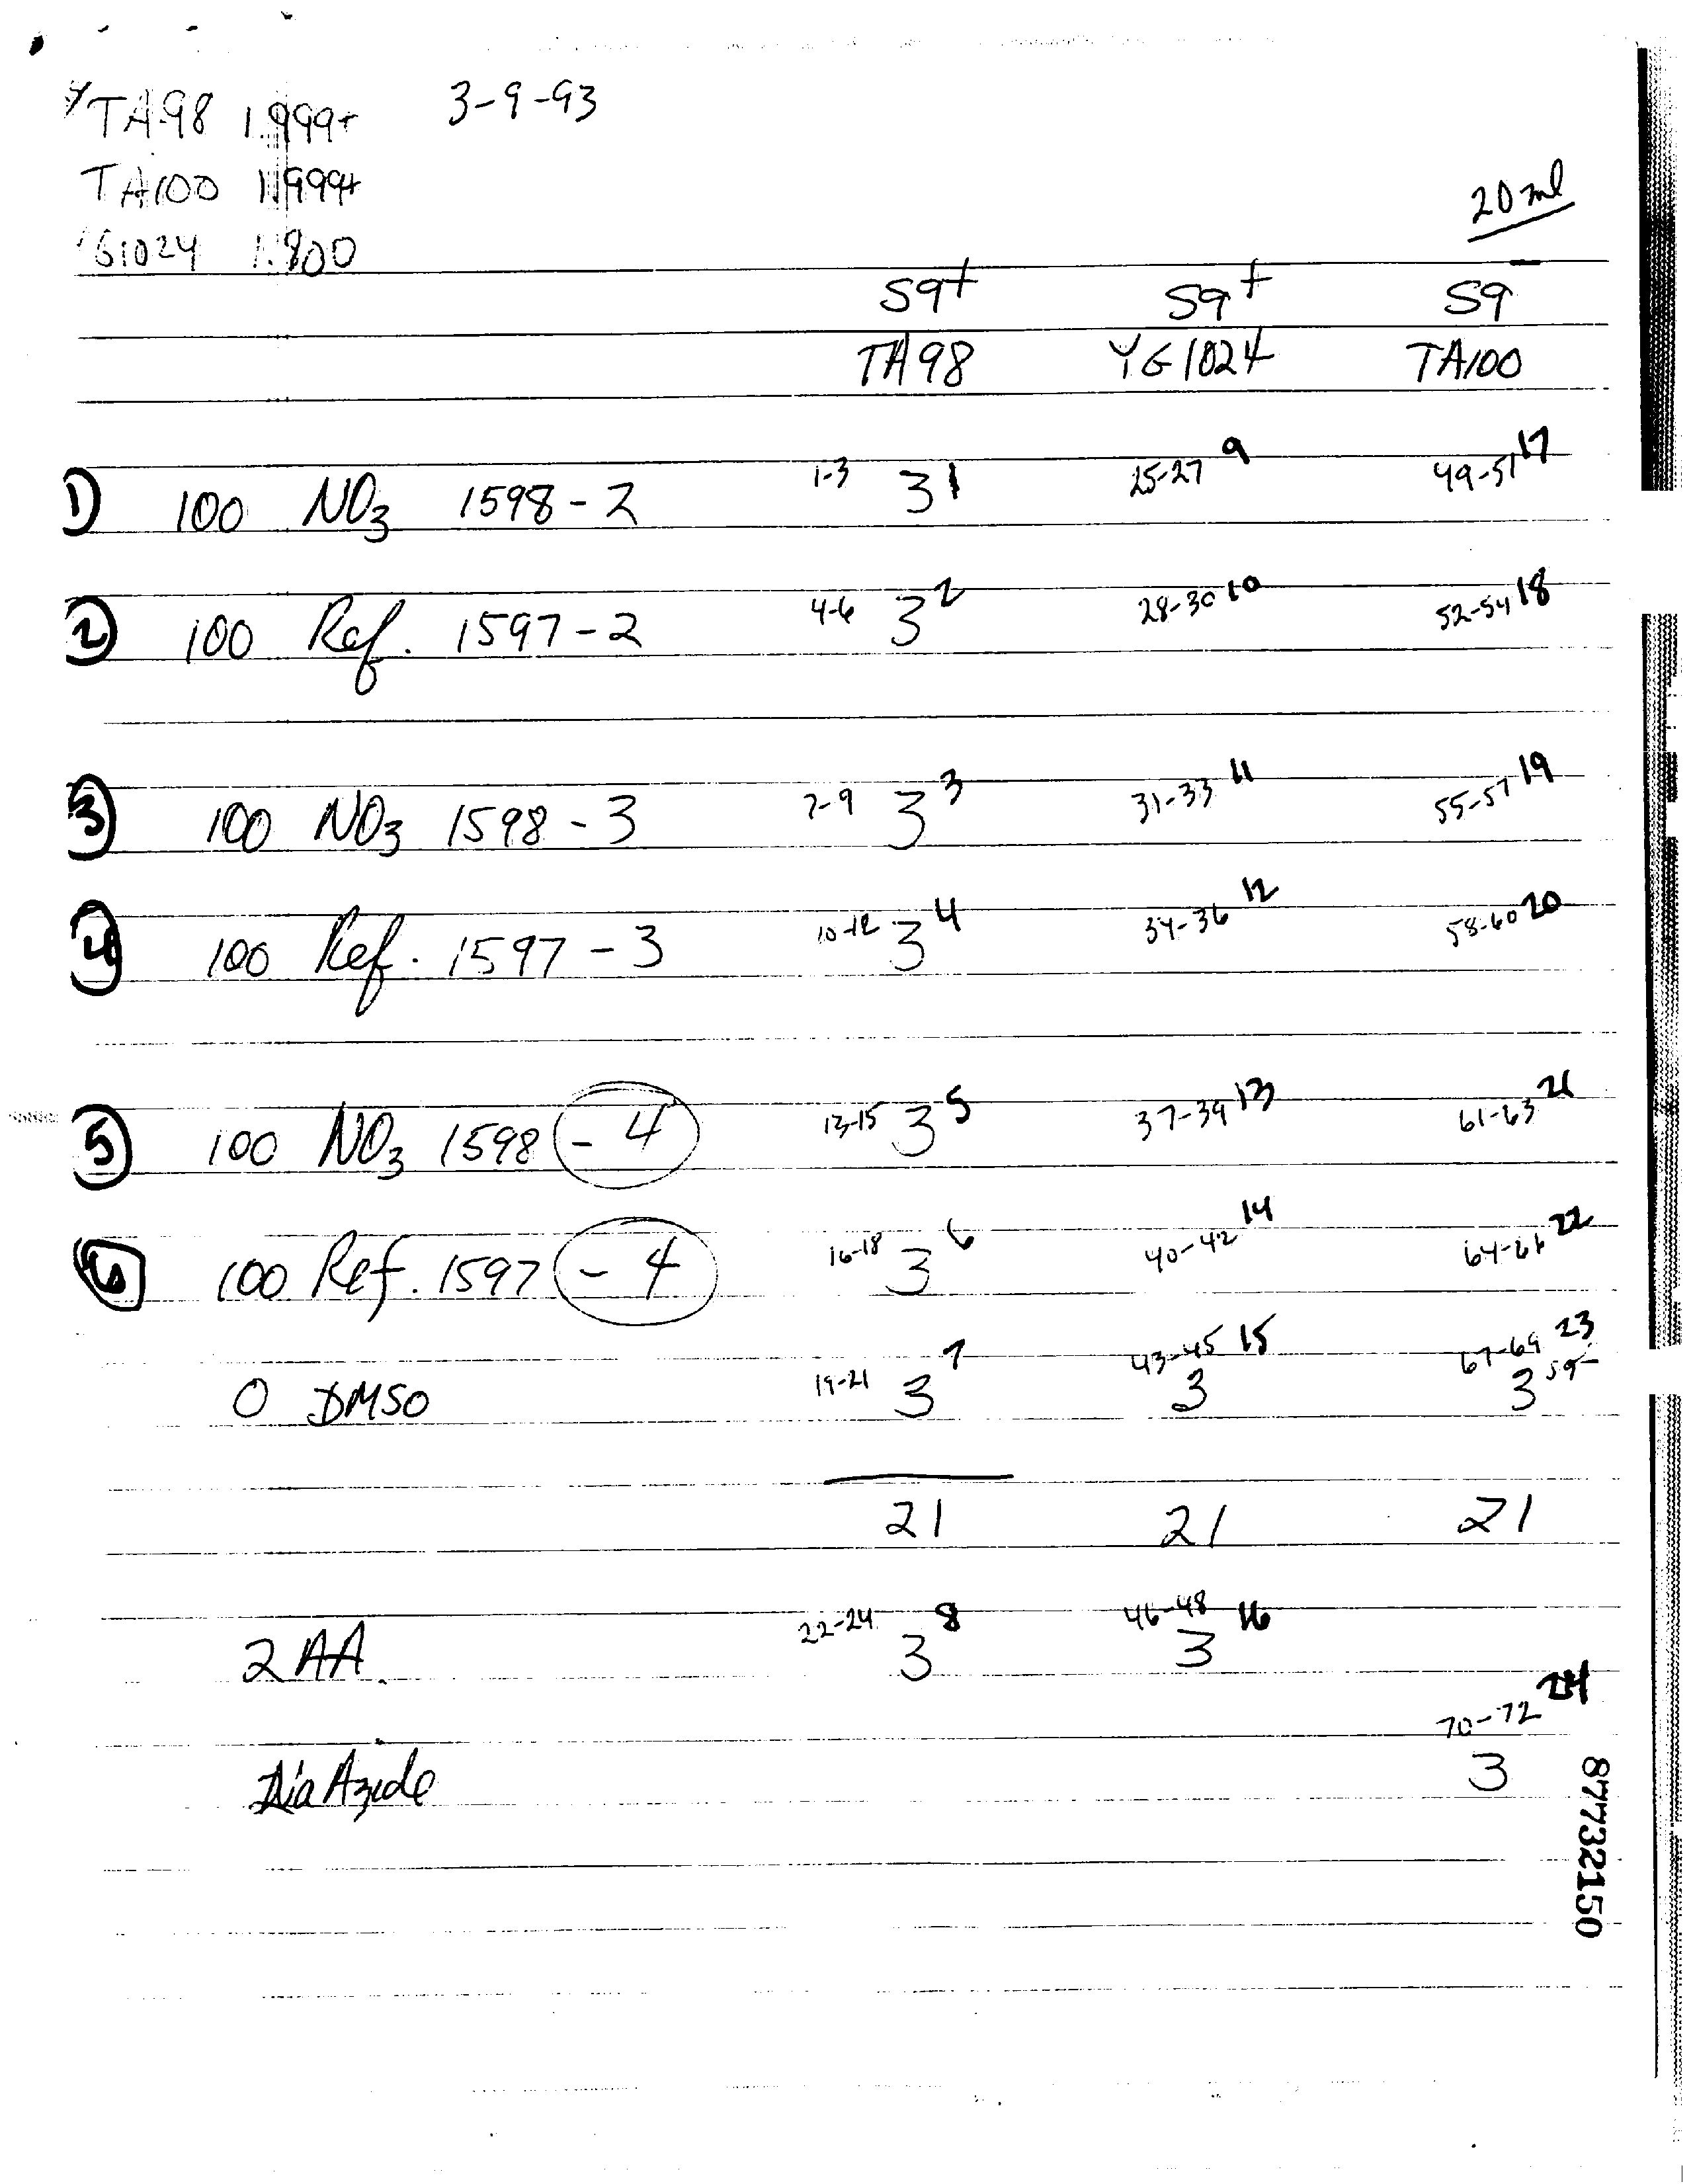 TA98 1.999+ 3-9-93
TA100 1.999+
G1024 1.800
20 ml
S9+ S9+ S9-
TA98 YG1024 TA100
1) 100 NO3 1598-2 1-3 3 1 25-27 9 49-51 17
2) 100 Ref. 1597-2 4-6 3 2 28-30 10 52-54 18
3) 100 NO3 1598-3 7-9 3 3 31-33 11 55-57 19
4) 100 Ref. 1597-3 10-12 3 4 34-36 12 58-60 20
5) 100 NO3 1598-4 13-15 3 5 37-39 13 61-63 21
6) 100 Ref. 1597-4 16-18 3 6 40-42 14 64-66 22
0 DMSO 19-21 3 7 43-45 15 3 67-69 23 3 S9-
21 21 21
2AA 22-24 3 8 46-48 16 3
70-72 24
Na Azide 3
87732150